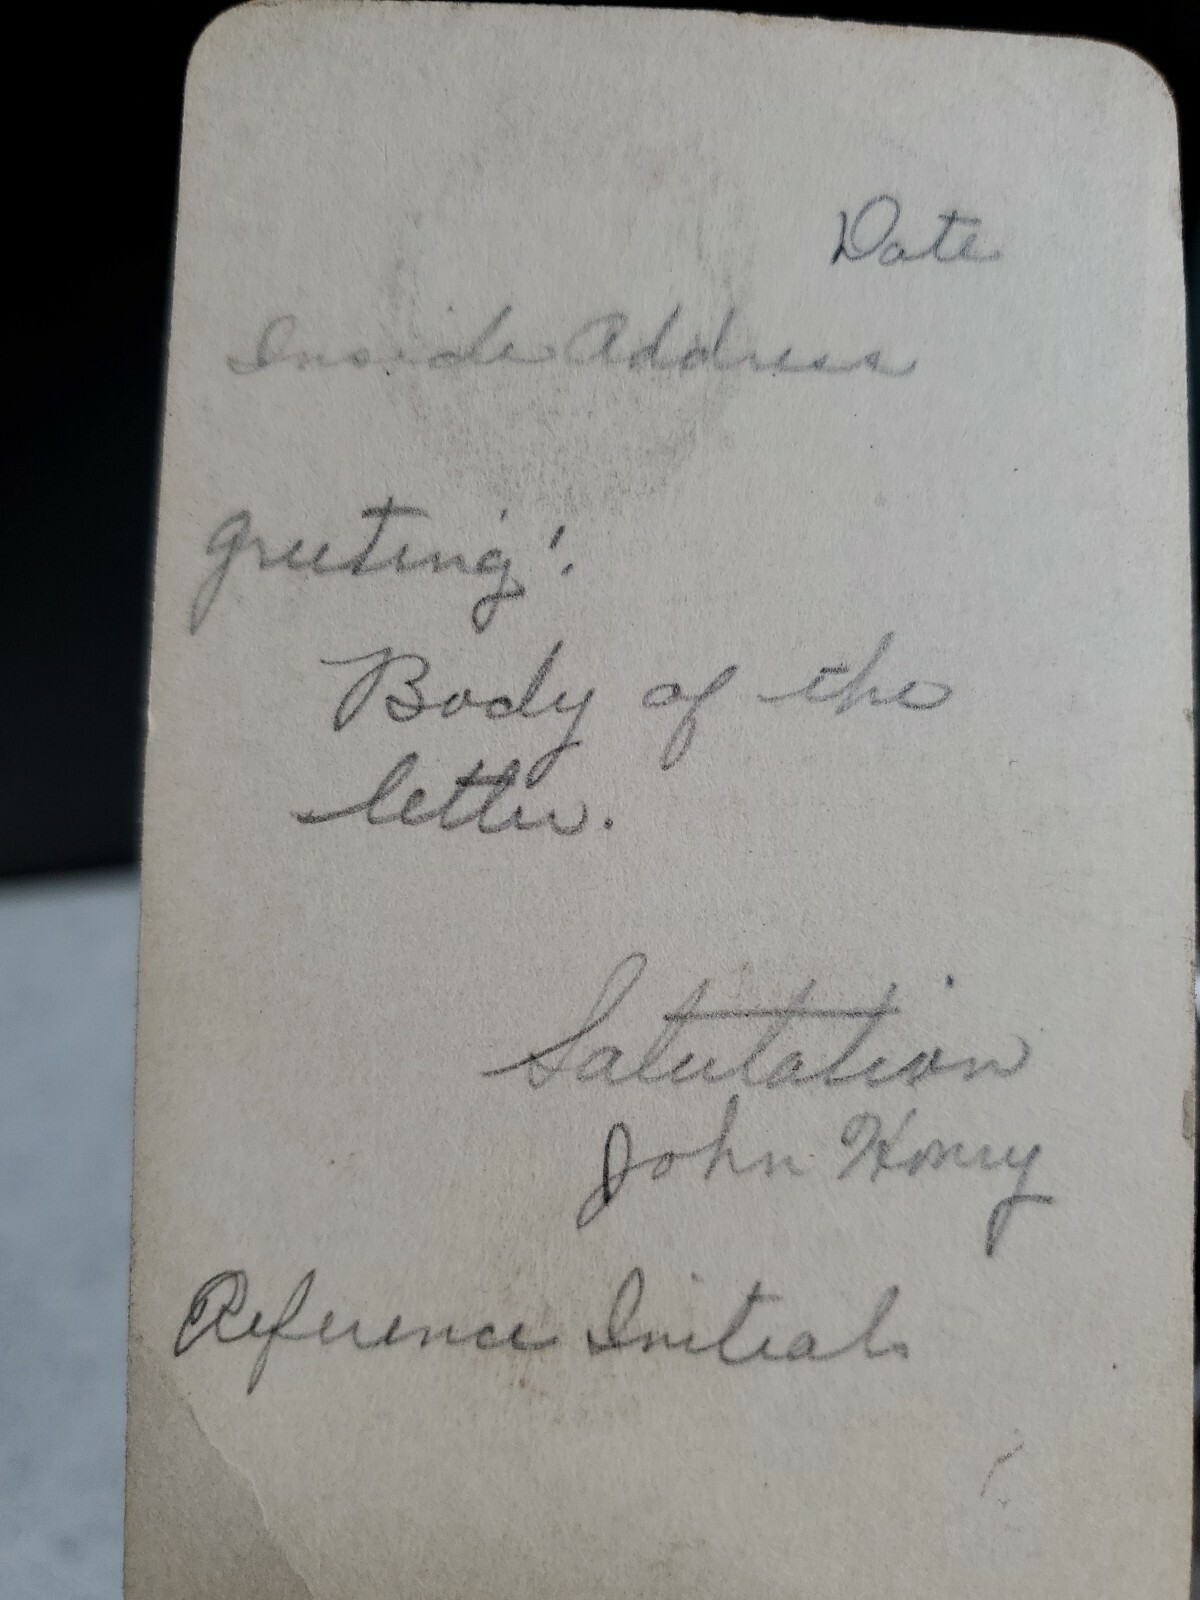 Date
Inside Address
Greeting:
Body of the
letter.
Salutation
John Henry
Reference Initials